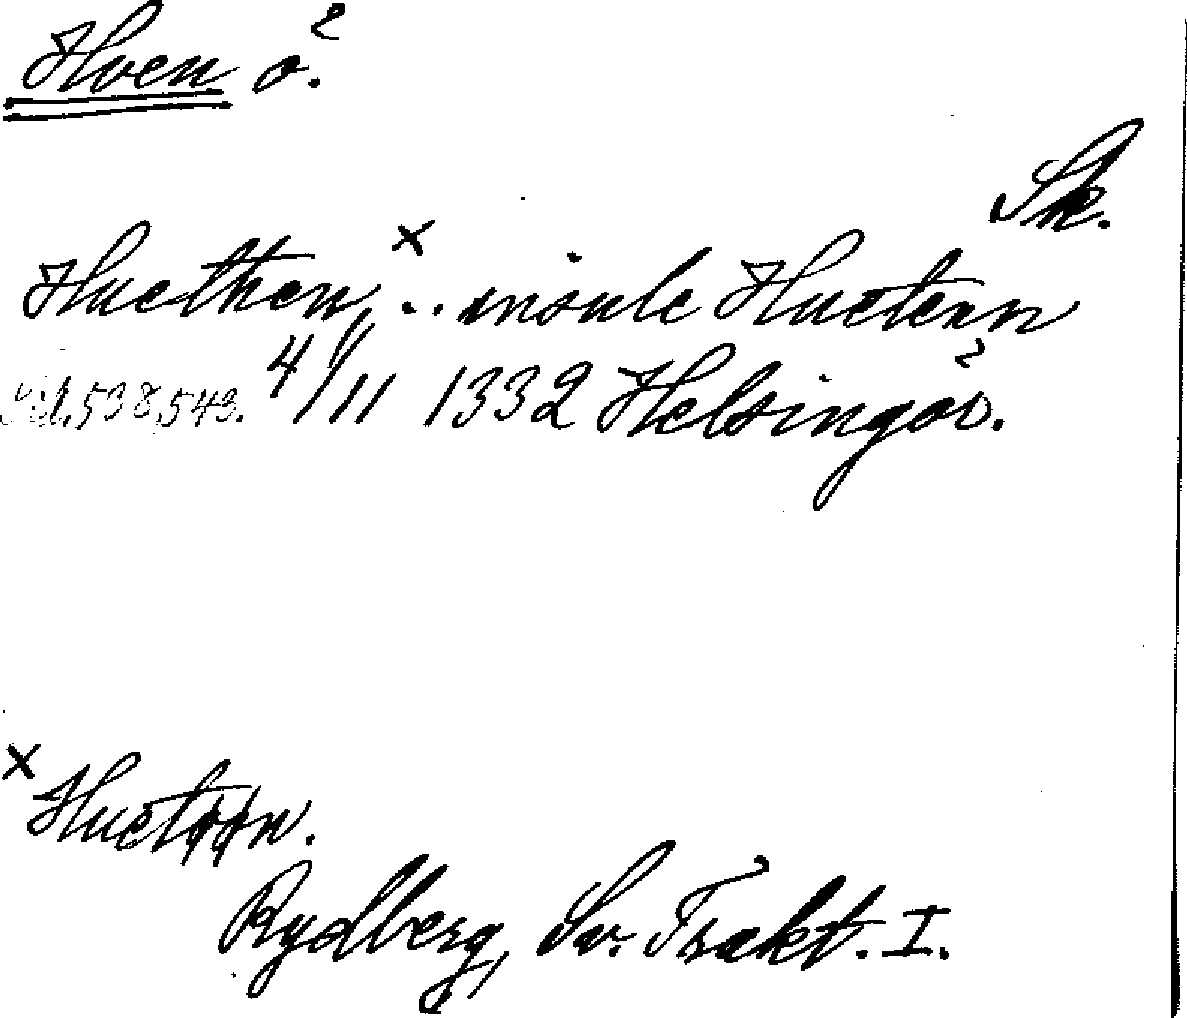 Hven ö.
Sk.
Huethen, x .. insule Huetenn
Sid. 538, 543. 4/11 1332 Helsingör.
x Huetøøn.
Rydberg, Sv. Trakt. I.